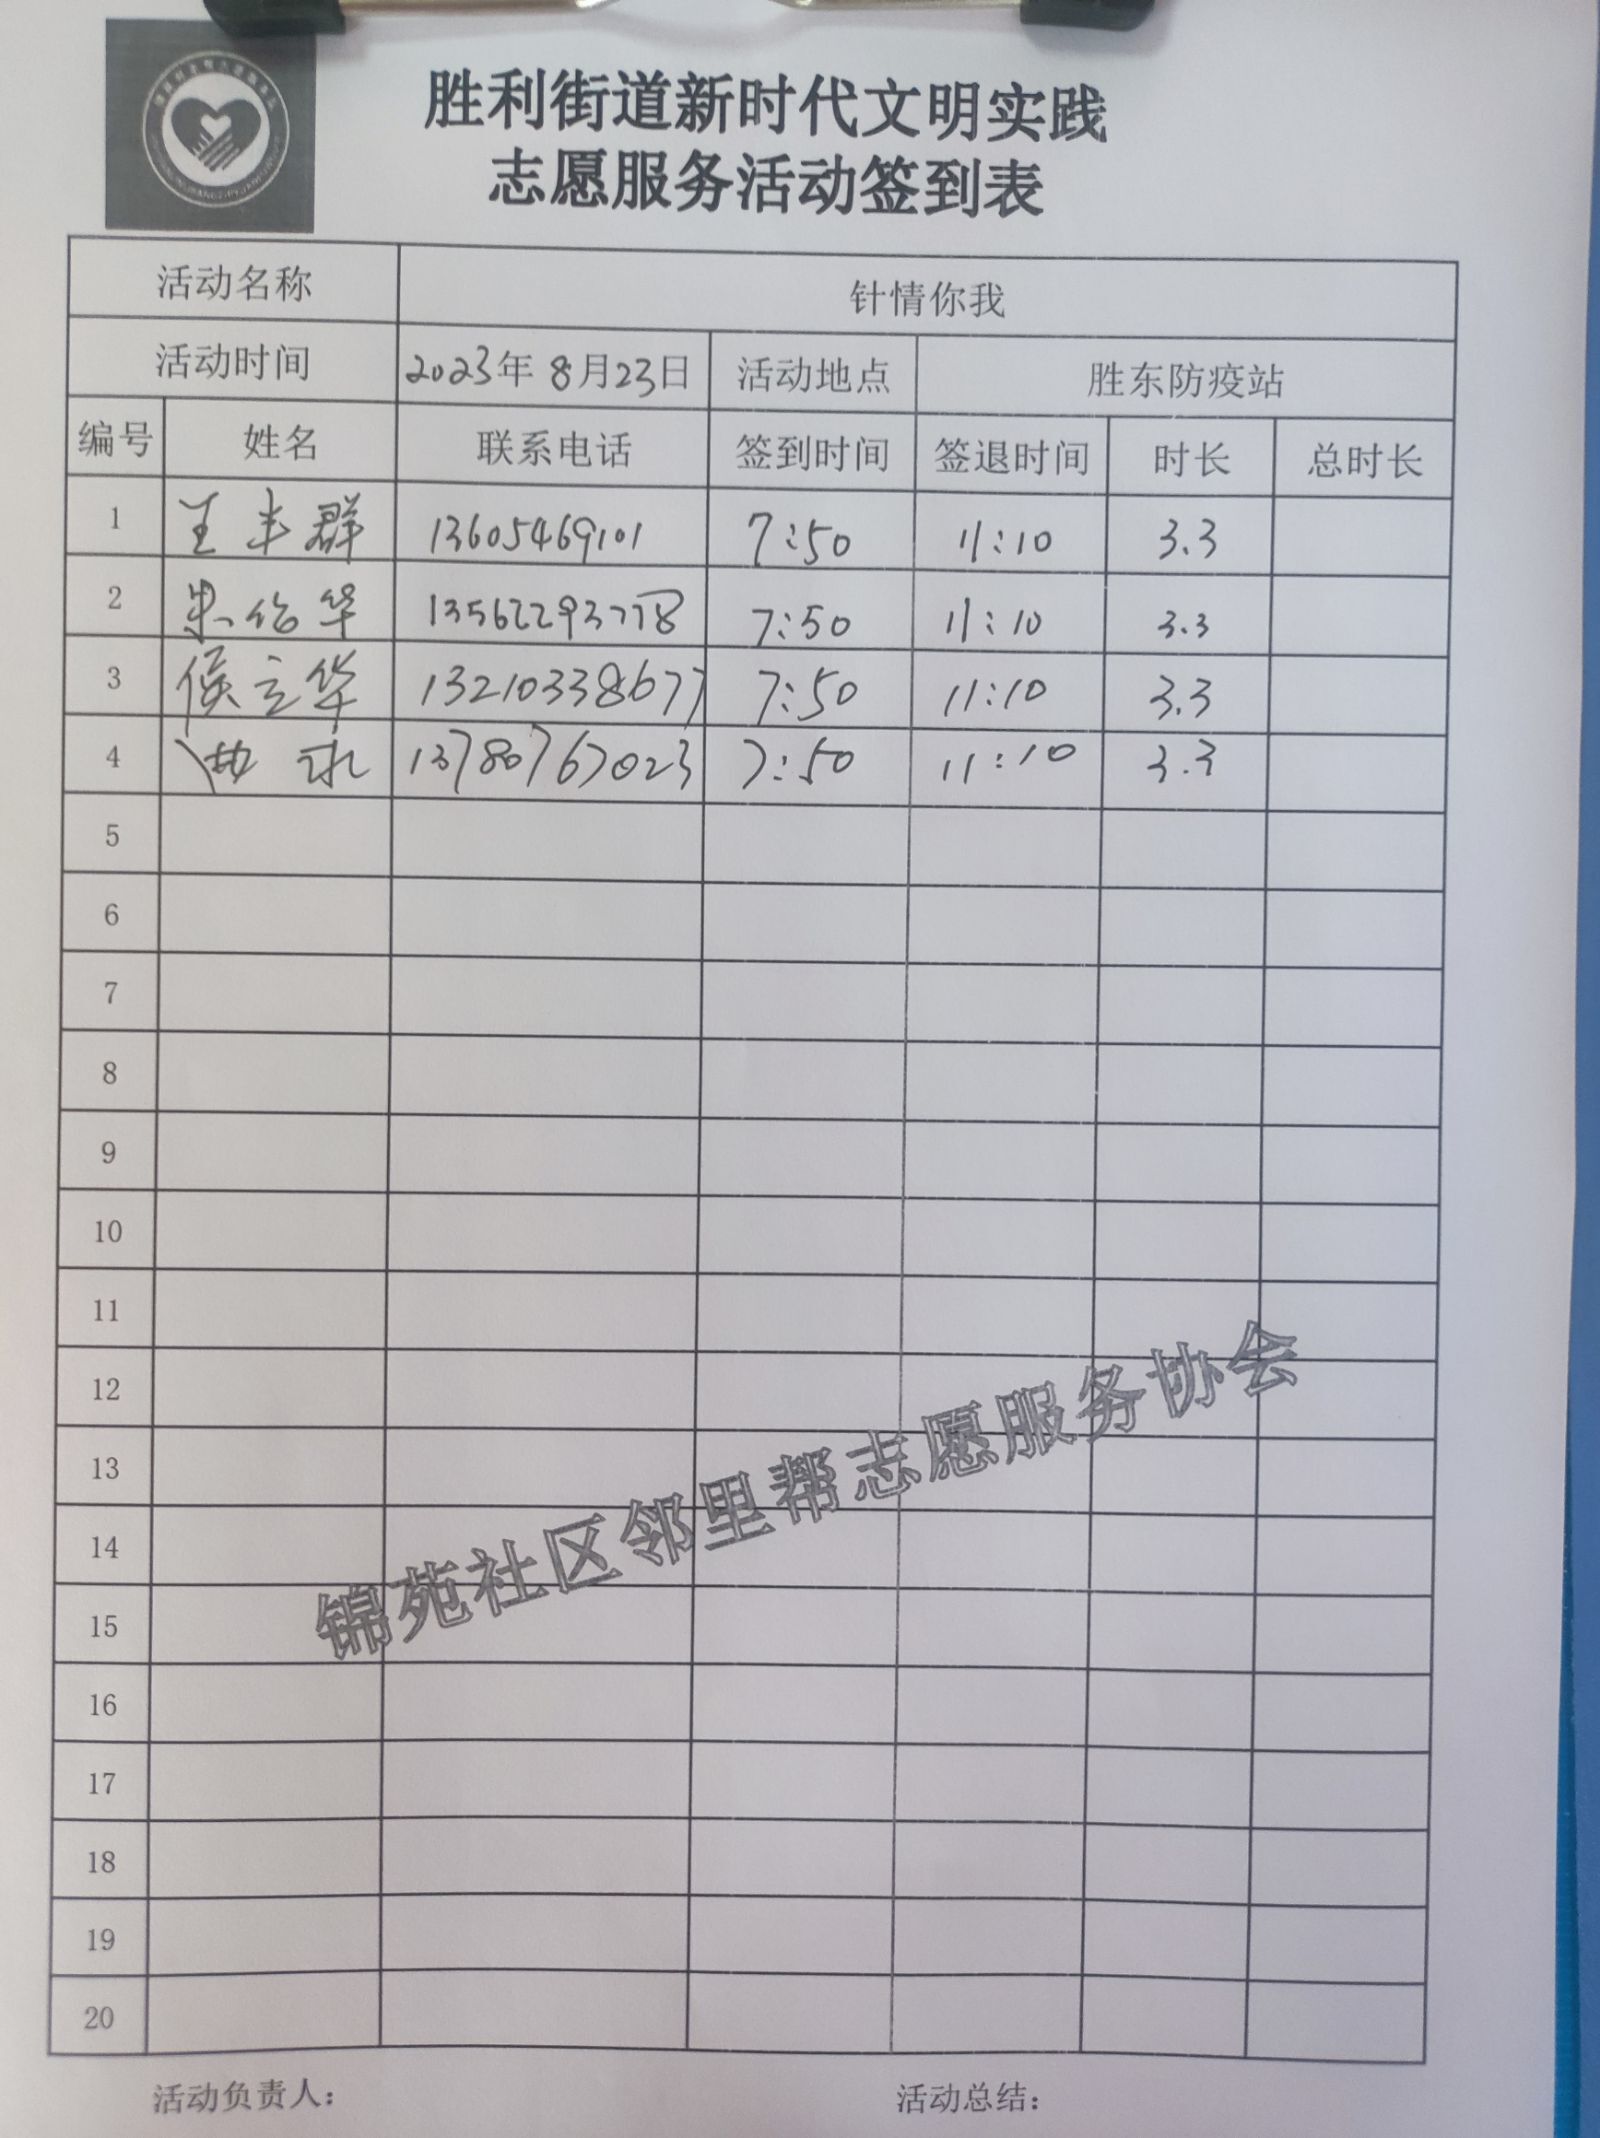 胜利街道新时代文明实践
志愿服务活动签到表
活动名称 针情你我
活动时间 2023年8月23日 活动地点 胜东防疫站
编号 姓名 联系电话 签到时间 签退时间 时长 总时长
1 王丰群 13605469101 7:50 11:10 3.3
2 朱 华 13562293778 7:50 11:10 3.3
3 侯立华 13210338677 7:50 11:10 3.3
4 13780767023 7:50 11:10 3.3
5
6
7
8
9
10
11
12
13
14
15
16
17
18
19
20
锦苑社区邻里帮志愿服务协会
活动负责人: 活动总结: